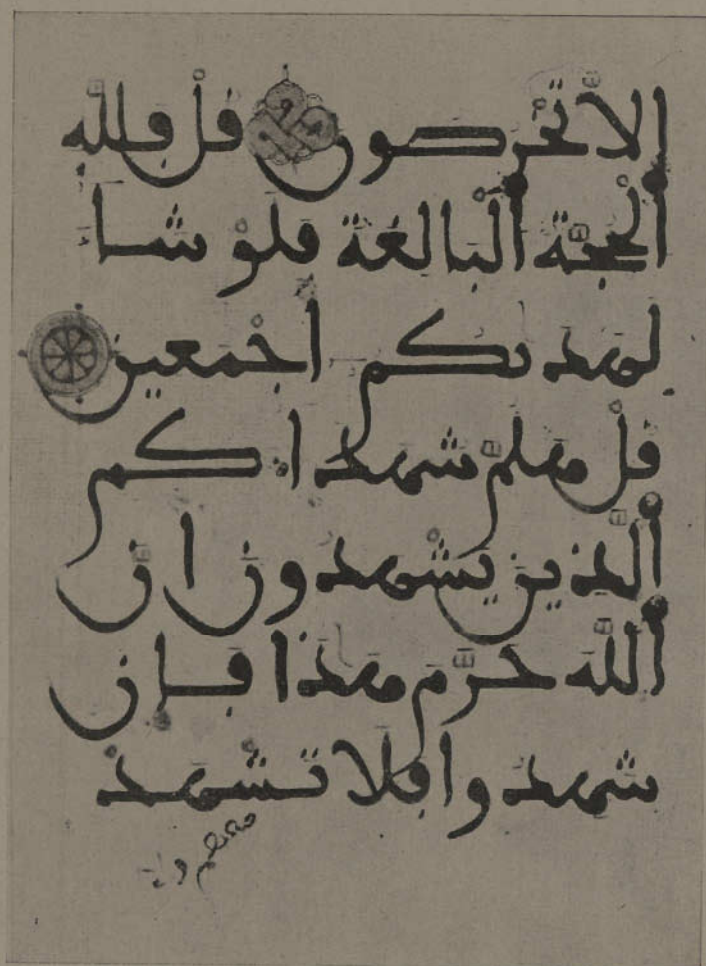 الا تخرصون قل فلله
الحجة البالغة فلو شا
لهديكم اجمعين
قل هلم شهداءكم
الذين يشهدون ان
الله حرم هذا فإن
شهدوا فلا تشهد
معهم ولا